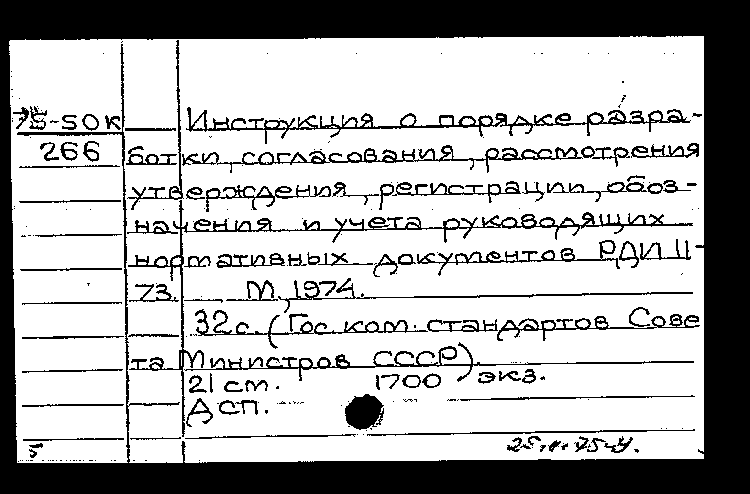 75-50к
266
Инструкция о порядке разра-
ботки, согласования, рассмотрения
утверждения, регистрации, обоз-
начения и учета руководящих
нормативных документов РДИ 11-
73. М., 1974.
32с. (Гос. ком. стандартов Сове
та Министров СССР).
21 см. 1700 экз.
Дсп.
5